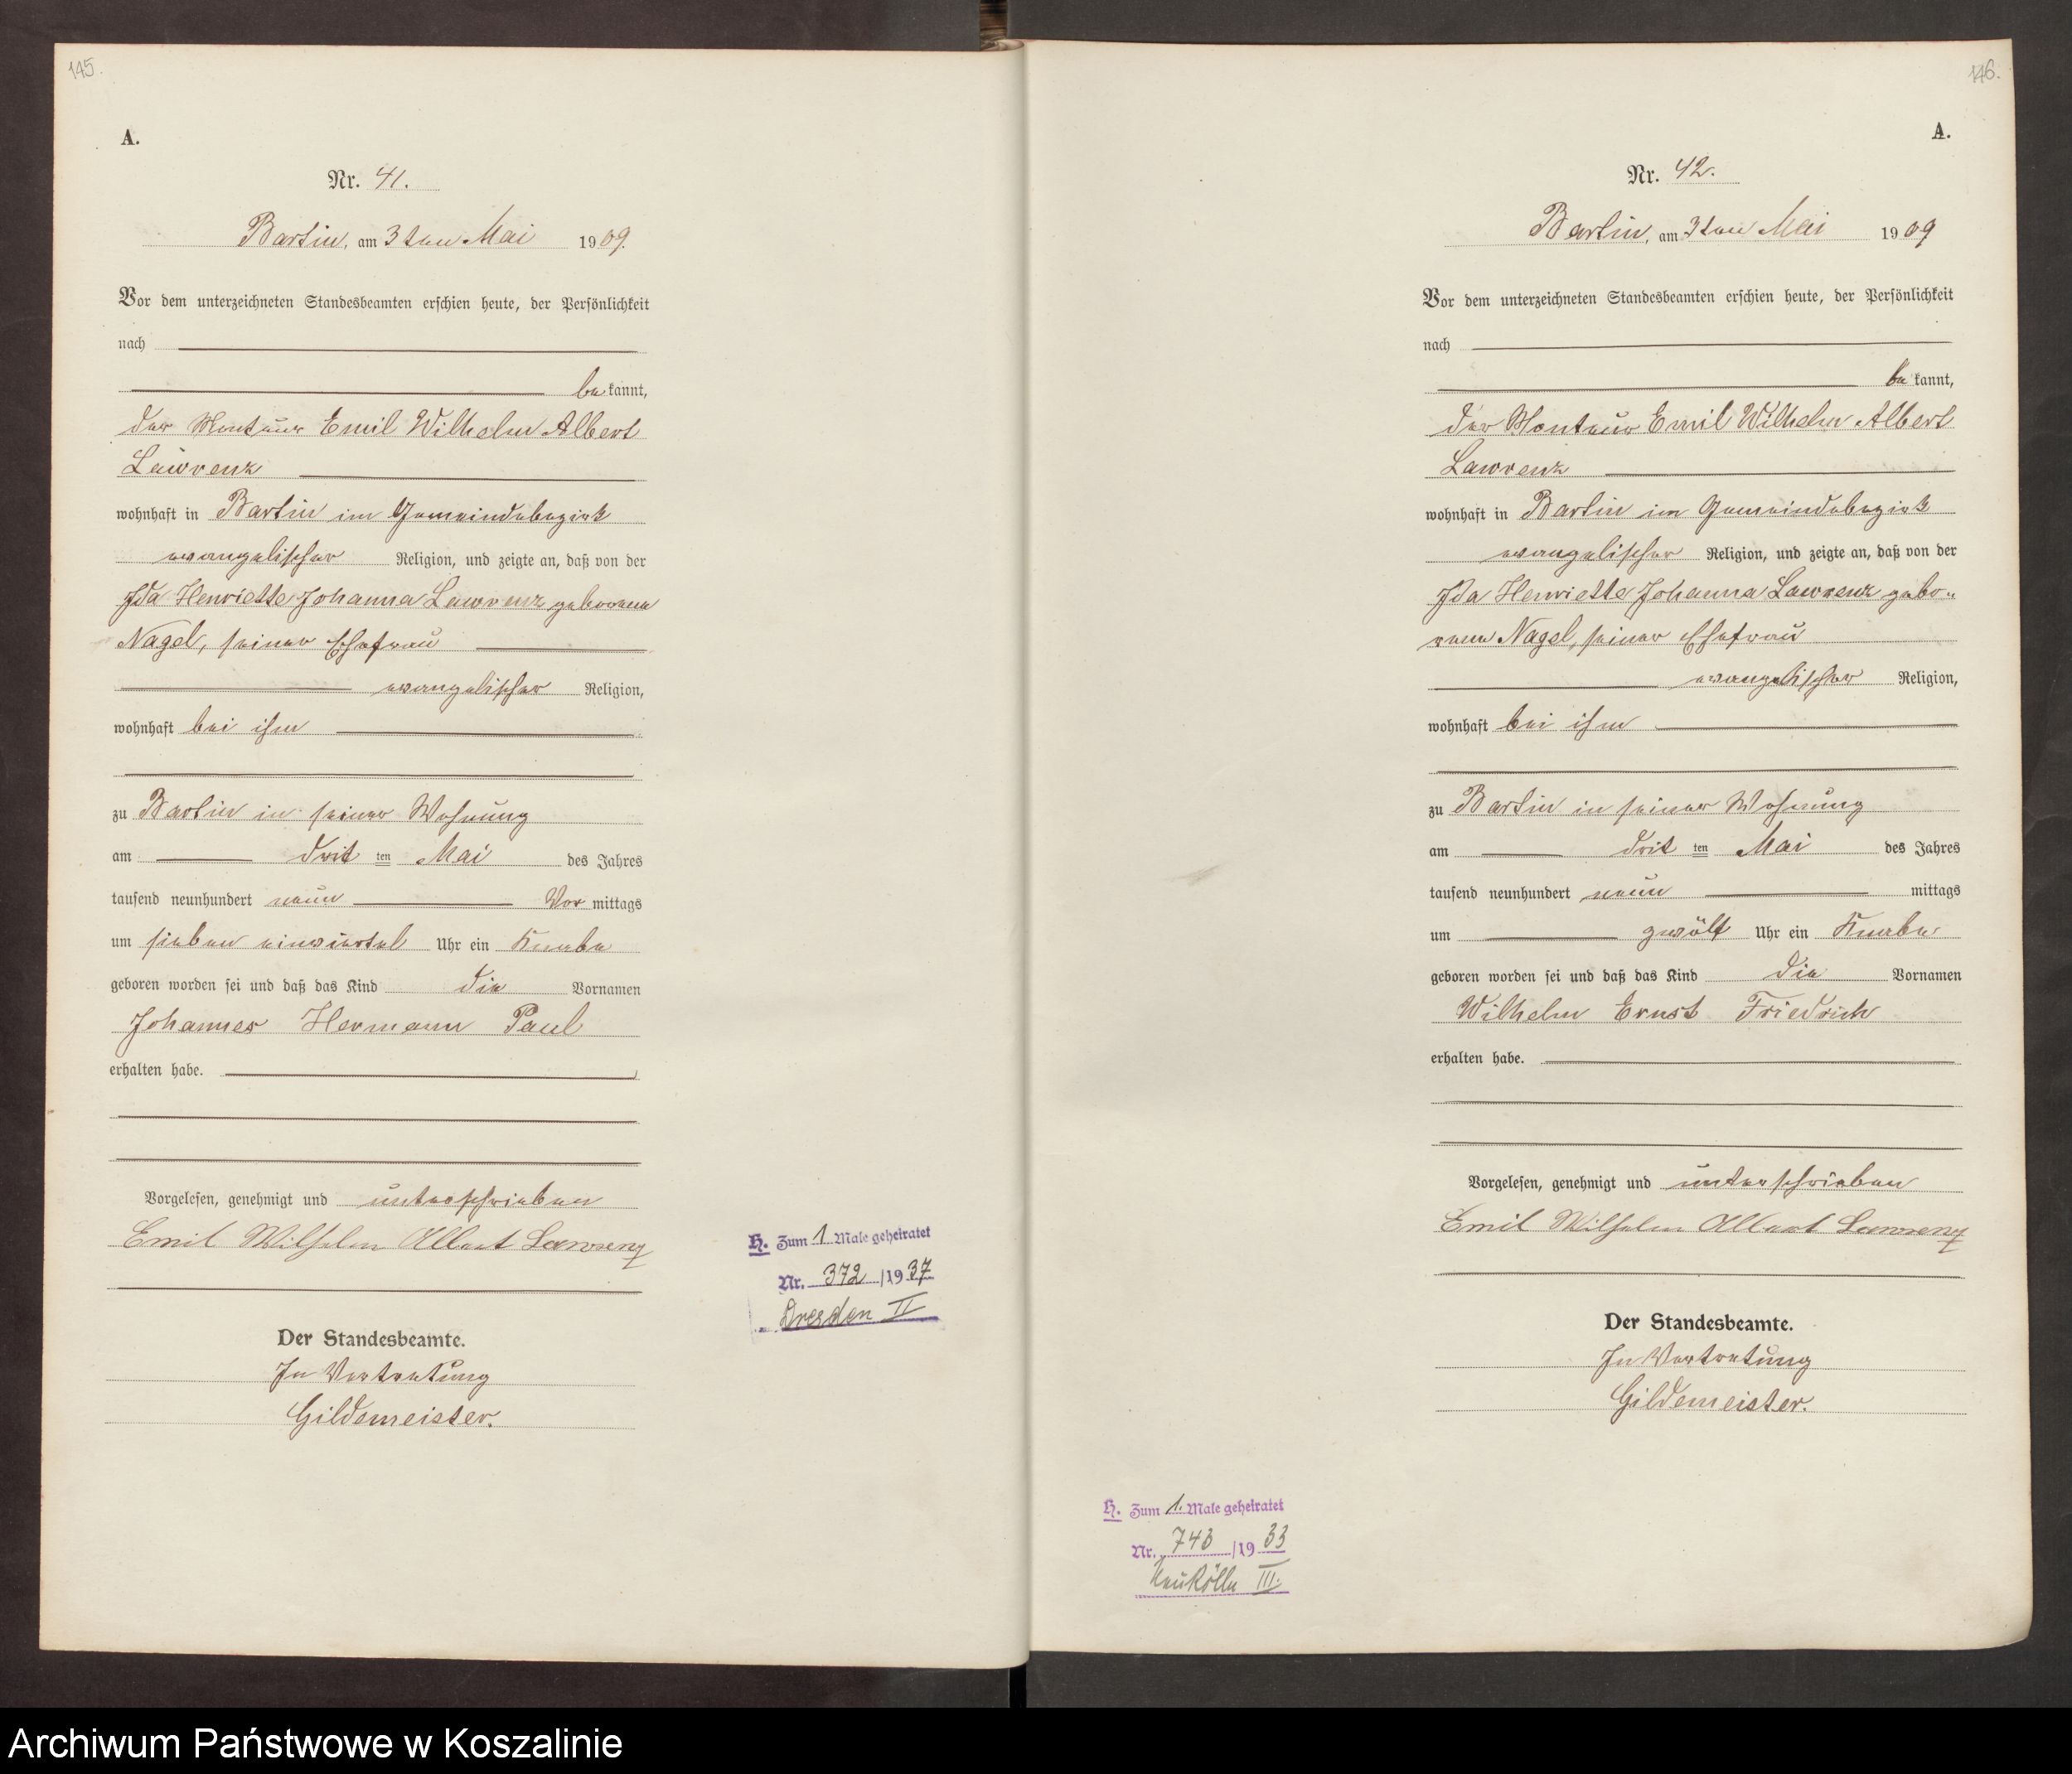 145.
A.
Nr. 41.
Bartin, am 3ten Mai 1909.
Vor dem unterzeichneten Standesbeamten erschien heute, der Persönlichkeit
nach
bekannt,
der Monteur Emil Wilhelm Albert
Lawrenz
wohnhaft in Bartin im Gemeindebezirk
evangelischer Religion, und zeigte an, daß von der
Ida Henriette Johanna Lawrenz geborene
Nagel, seiner Ehefrau
evangelischer Religion,
wohnhaft bei ihm
zu Bartin in seiner Wohnung
am dritten Mai des Jahres
tausend neunhundert neun Vormittags
um sieben einviertel Uhr ein Knabe
geboren worden sei und daß das Kind die Vornamen
Johannes Hermann Paul
erhalten habe.
Vorgelesen, genehmigt und unterschrieben
Emil Wilhelm Albert Lawrenz
Der Standesbeamte.
In Vertretung
Gildemeister.
H. Zum 1 Male geheiratet
Nr. 372 /1937
Dresden II
146.
A.
Nr. 42.
Bartin, am 3ten Mai 1909
Vor dem unterzeichneten Standesbeamten erschien heute, der Persönlichkeit
nach
bekannt,
der Monteur Emil Wilhelm Albert
Lawrenz
wohnhaft in Bartin im Gemeindebezirk
evangelischer Religion, und zeigte an, daß von der
Ida Henriette Johanna Lawrenz gebo-
rene Nagel, seiner Ehefrau
evangelischer Religion,
wohnhaft bei ihm
zu Bartin in seiner Wohnung
am dritten Mai des Jahres
tausend neunhundert neun mittags
um zwölf Uhr ein Knabe
geboren worden sei und daß das Kind die Vornamen
Wilhelm Ernst Friedrich
erhalten habe.
Vorgelesen, genehmigt und unterschrieben
Emil Wilhelm Albert Lawrenz
Der Standesbeamte.
In Vertretung
Gildemeister.
H. Zum 1. Male geheiratet
Nr. 743 /1933
Neukölln III.
Archiwum Państwowe w Koszalinie